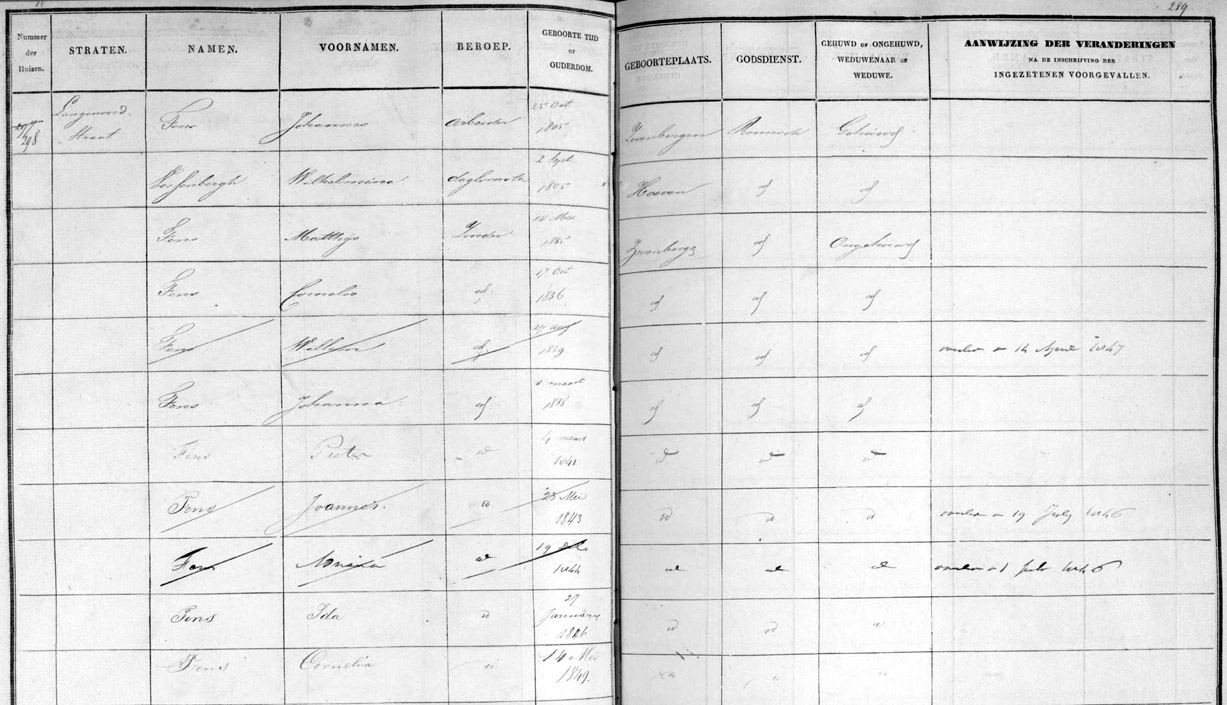 289
Nummer der Huizen.
STRATEN.
NAMEN.
VOORNAMEN.
BEROEP.
GEBOORTE TIJD OF OUDERDOM.
GEBOORTEPLAATS.
GODSDIENST.
GEHUWD OF ONGEHUWD, WEDUWENAAR OF WEDUWE.
AANWIJZING DER VERANDERINGEN
NA DE INSCHRIJVING DER
INGEZETENEN VOORGEVALLEN.
298 Langenoord Straat Fens Johannes arbeider 25 Oct 1805 Zevenbergen Roomsch Gehuwd
Wilhelmina 2 Sept 1805 Hoeven id id
Fens Matthijs Zonder 14 1835 Zevenbergen id Ongehuwd
Fens Cornelis id 17 Oct 1836 id id id
Fens Willem id 27 1839 id id id 14 April 1847
Fens Johanna id maart 1838 id id id
Fens Pieter id 4 maart 1841 id id id
Fens Joannes id 28 Mei 1843 id id id 19 July 1846
Fens id 19 1844 id id id 1846
Fens Ida id 27 January 1846 id id id
Fens Cornelia id 14 Mei 1849. id id id